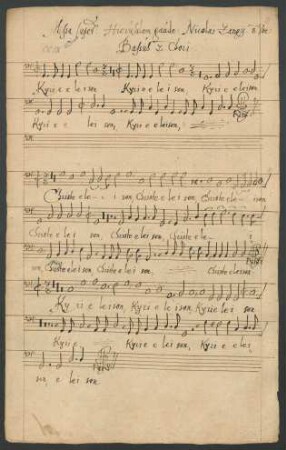 Missa super. Hierusalem gaude. Nicolas Zangg. 8 Voc:
Bassus 2. Chori
Kyrie eleison, Kyrie eleison, Kyrie eleison
Kyrie eleison, Kyrie eleison,
Christe ele- i son, Christe eleison, Christe ele- ison
Christe eleison, Christe eleison, Christe ele-
son, Christe eleison, Christe eleison. Christe eleison
Kyrie eleison, Kyrie eleison, Kyrie eleison
Kyrie Kyrie eleison, Kyrie elei
son, eleison.